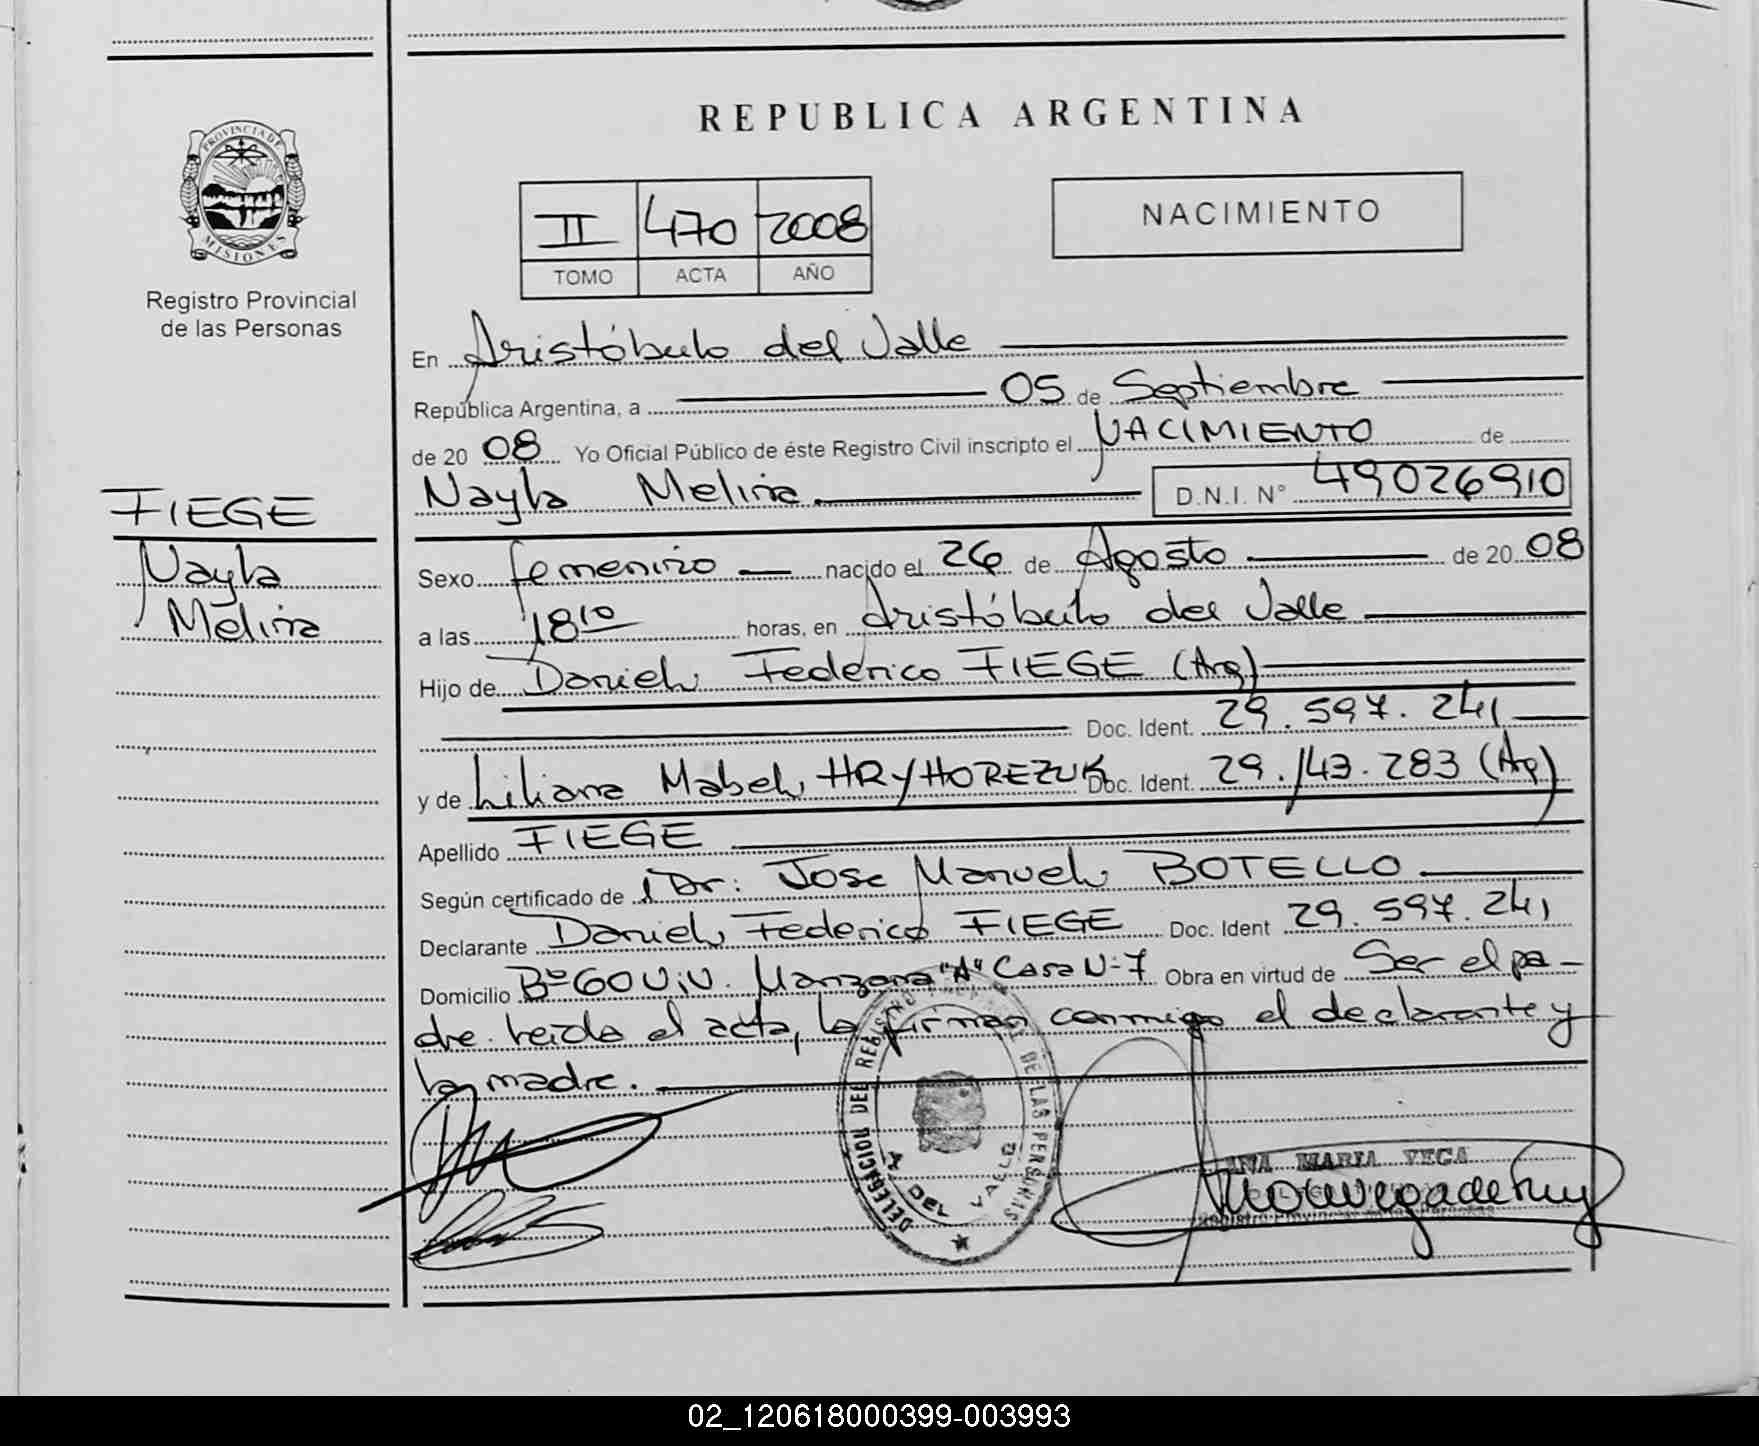 REPUBLICA ARGENTINA
PROVINCIA DE MISIONES
Registro Provincial
de las Personas
II 470 2008
TOMO ACTA AÑO
NACIMIENTO
En Aristóbulo del Valle
República Argentina, a 05 de Septiembre
de 2008 Yo Oficial Público de éste Registro Civil inscripto el NACIMIENTO de
Nayla Melina. D.N.I. N° 49026910
FIEGE
Nayla
Melina
Sexo femenino nacido el 26 de Agosto de 2008
a las 18 10 horas, en Aristóbulo del Valle
Hijo de Daniel Federico FIEGE (Arg)
Doc. Ident. 29.597.241
y de Liliana Mabel HRYHOREZUK Doc. Ident. 29.143.283 (Arg)
Apellido FIEGE
Según certificado de Dr: Jose Manuel BOTELLO
Declarante Daniel Federico FIEGE Doc. Ident 29.597.241
Domicilio B° 60 Viv. Manzana "A" Casa N-7 Obra en virtud de Ser el pa-
dre. leída el acta, la firman conmigo el declarante y
la madre.
DELEGACION DEL REGISTRO DE LAS PERSONAS
A DEL VALLE
ANA MARIA VEGA
02_120618000399-003993